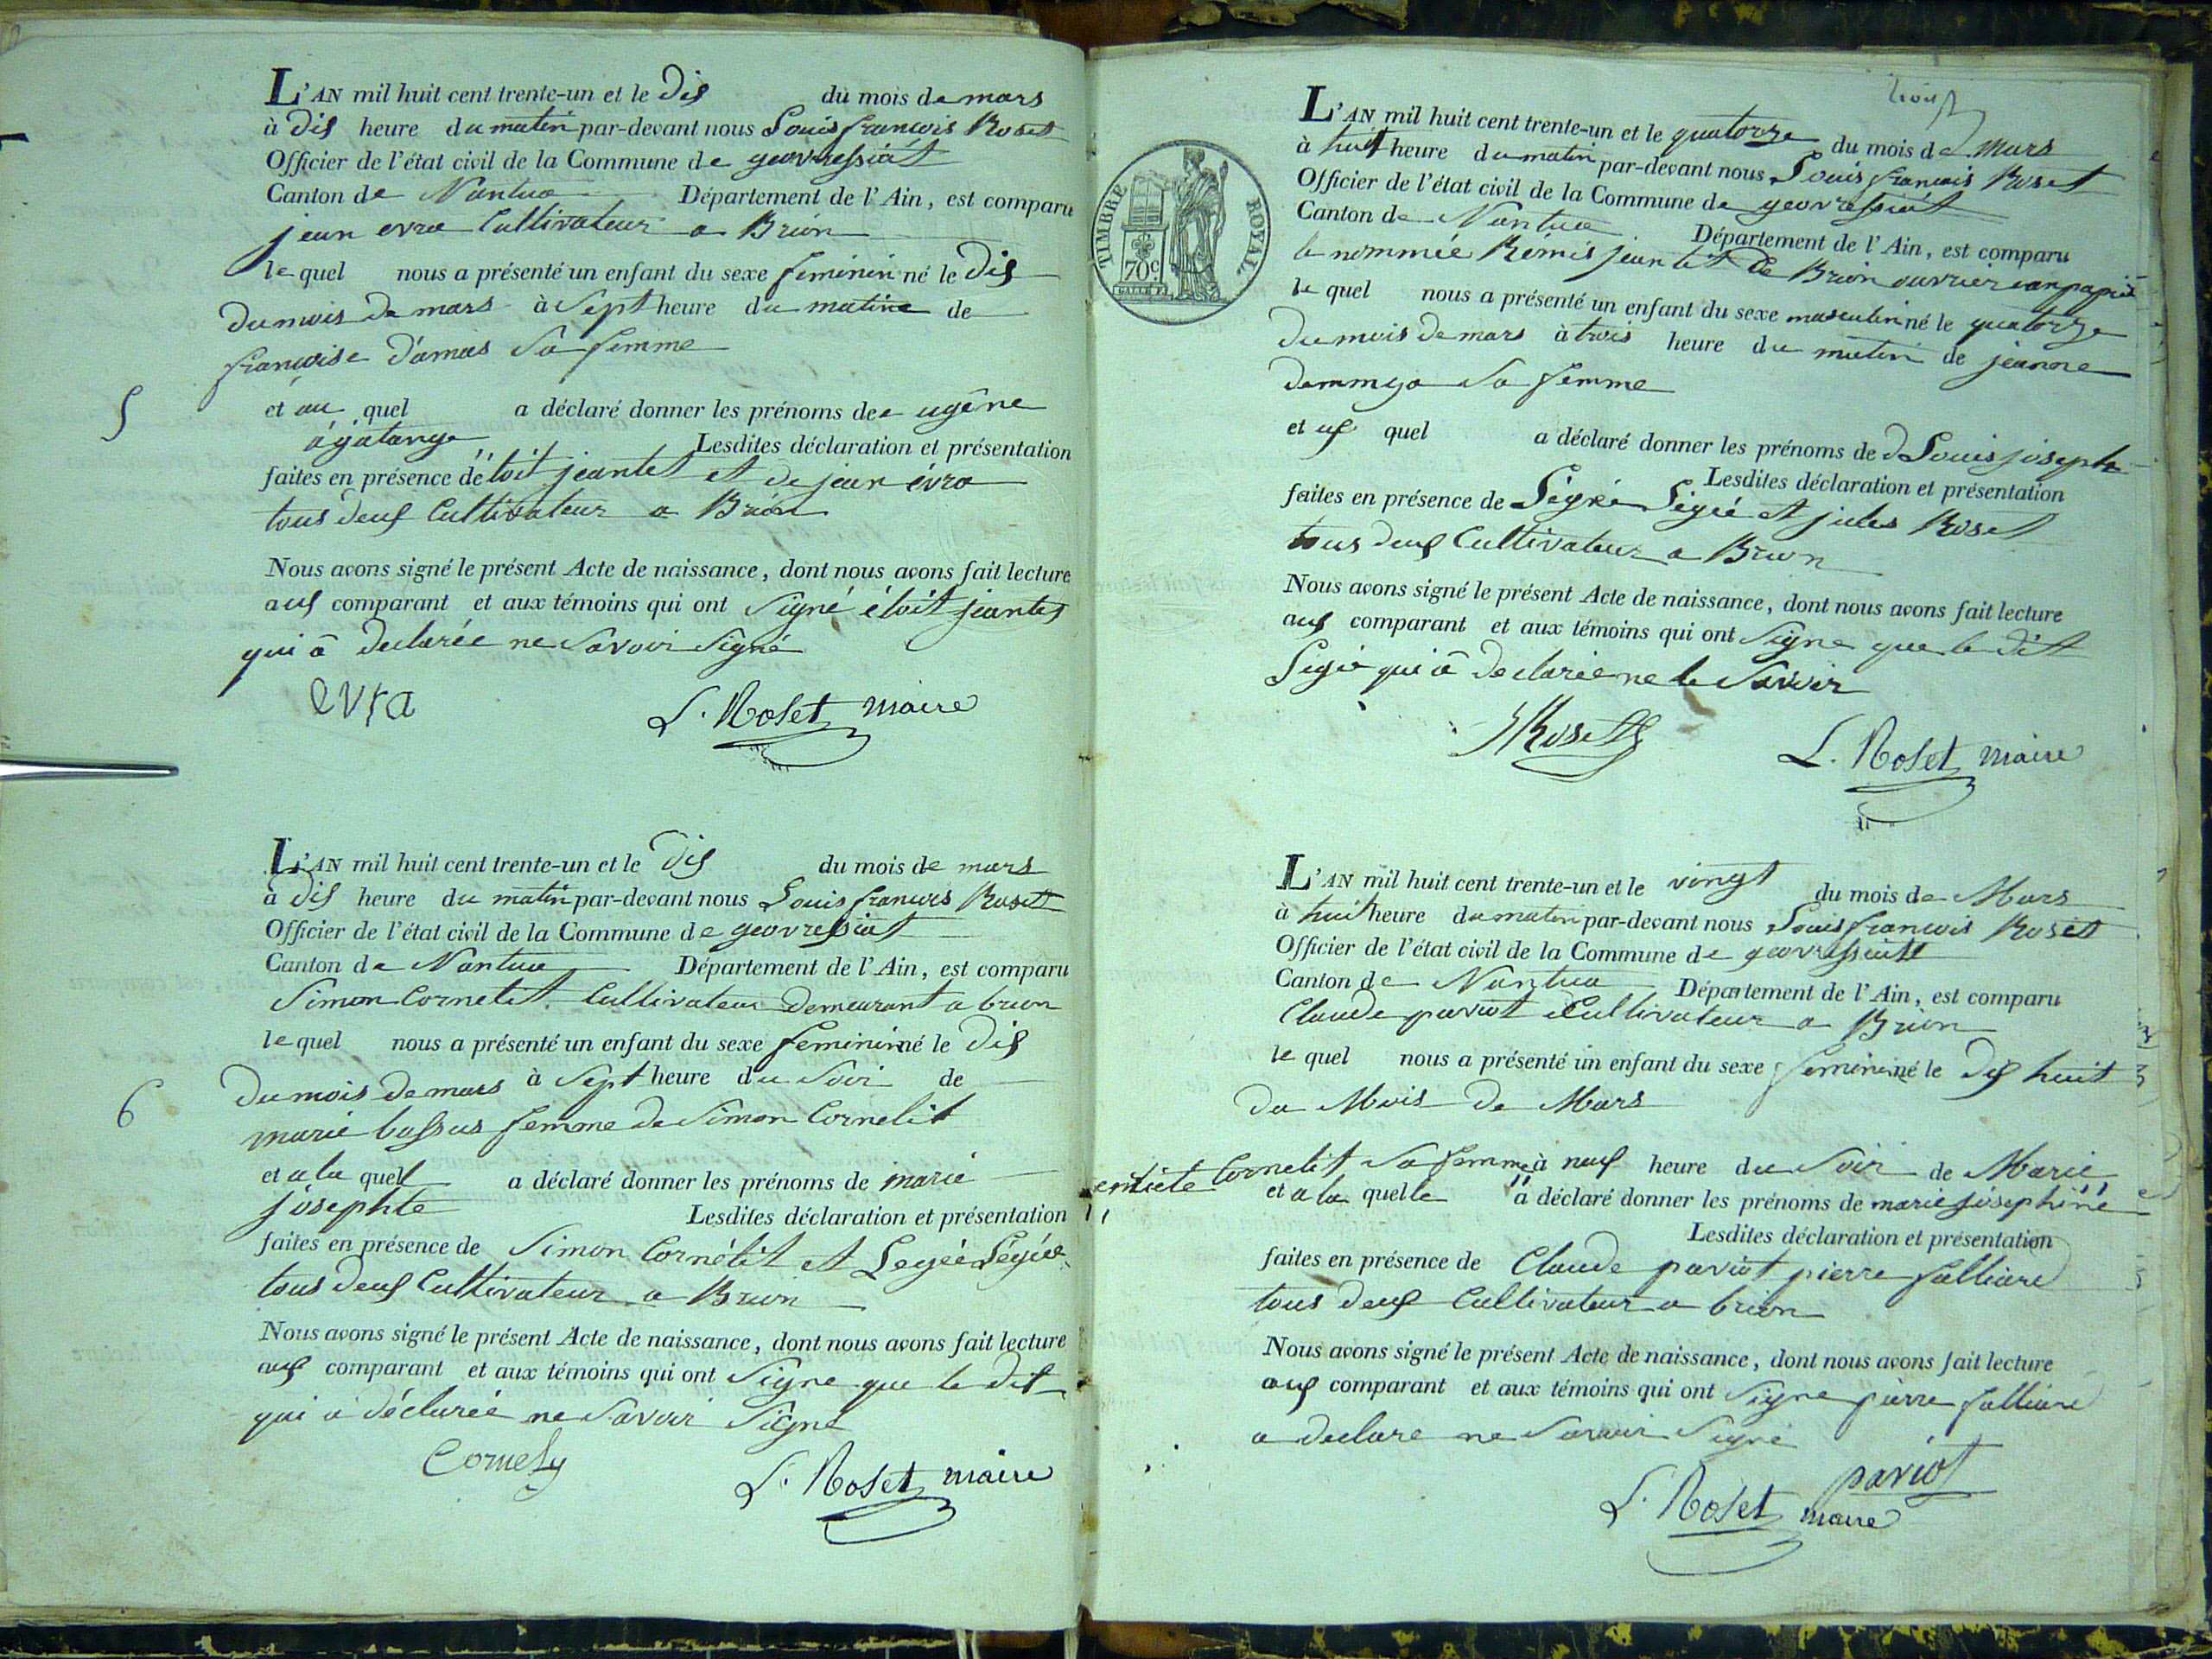 L'AN mil huit cent trente-un et le dix du mois de mars
à dix heure du matin par-devant nous Louis françois Roset
Officier de l'état civil de la Commune de geovressiat
Canton de Nantua Département de l'Ain, est comparu
jean evra Cultivateur a Brion
le quel nous a présenté un enfant du sexe feminin né le dix
du mois de mars à Sept heure du matin de
françoise damas Sa femme
5
et au quel a déclaré donner les prénoms de eugêne
agatange Lesdites déclaration et présentation
faites en présence de toit jeantet et de jean évra
tous deux Cultivateur a Brion
Nous avons signé le présent Acte de naissance, dont nous avons fait lecture
aux comparant et aux témoins qui ont Signé étoit jeantet
qui â declarée ne Savoir Signé
evra L. Roset maire
L'AN mil huit cent trente-un et le dix du mois de mars
à dix heure du matin par-devant nous Louis françois Roset
Officier de l'état civil de la Commune de geovressiat
Canton de Nantua Département de l'Ain, est comparu
Simon Cornelit Cultivateur demeurant a brion
le quel nous a présenté un enfant du sexe feminin né le dix
du mois de mars à Sept heure du Soir de
6
marie bassus femme de Simon Cornelit
et a la quell a déclaré donner les prénoms de marie
josephte Lesdites déclaration et présentation
faites en présence de Simon Cornélit et Legée Légée
tous deux Cultivateur a Brion
Nous avons signé le présent Acte de naissance, dont nous avons fait lecture
aux comparant et aux témoins qui ont Signe que le dit
qui a déclarée ne Savoir Signé
Cornely L. Roset maire
trois
L'AN mil huit cent trente-un et le quatorze du mois de Mars
à huit heure du matin par-devant nous Louis françois Roset
Officier de l'état civil de la Commune de geovressiat
Canton de Nantua Département de l'Ain, est comparu
TIMBRE ROYAL
70c
le nommée Rémis jeantet De Brion ouvrier
le quel nous a présenté un enfant du sexe masculin né le quatorze
du mois de mars à trois heure du matin de jeanne
Sa femme
et quel a déclaré donner les prénoms de Louis joseph
Lesdites déclaration et présentation
faites en présence de Légée et jules Roset
tous deux Cultivateur a Brion
Nous avons signé le présent Acte de naissance, dont nous avons fait lecture
aux comparant et aux témoins qui ont Signe que le dit
Legée qui â declarée ne le Savoir
JRoset L. Roset maire
L'AN mil huit cent trente-un et le vingt du mois de Mars
à huit heure du matin par-devant nous Louis françois Roset
Officier de l'état civil de la Commune de geovressiatt
Canton de Nantua Département de l'Ain, est comparu
Claude paviot Cultivateur a Brion
le quel nous a présenté un enfant du sexe feminin né le dix huit
du Mois de Mars
Cornelit Sa femme à neuf heure du Soir de Marie
et a la quelle a déclaré donner les prénoms de marie josephine
Lesdites déclaration et présentation
faites en présence de Claude paviot pierre falliard
tous deux Cultivateur a brion
Nous avons signé le présent Acte de naissance, dont nous avons fait lecture
aux comparant et aux témoins qui ont Signe pierre falliard
a declare ne Savoir Signé
paviot
L. Roset maire